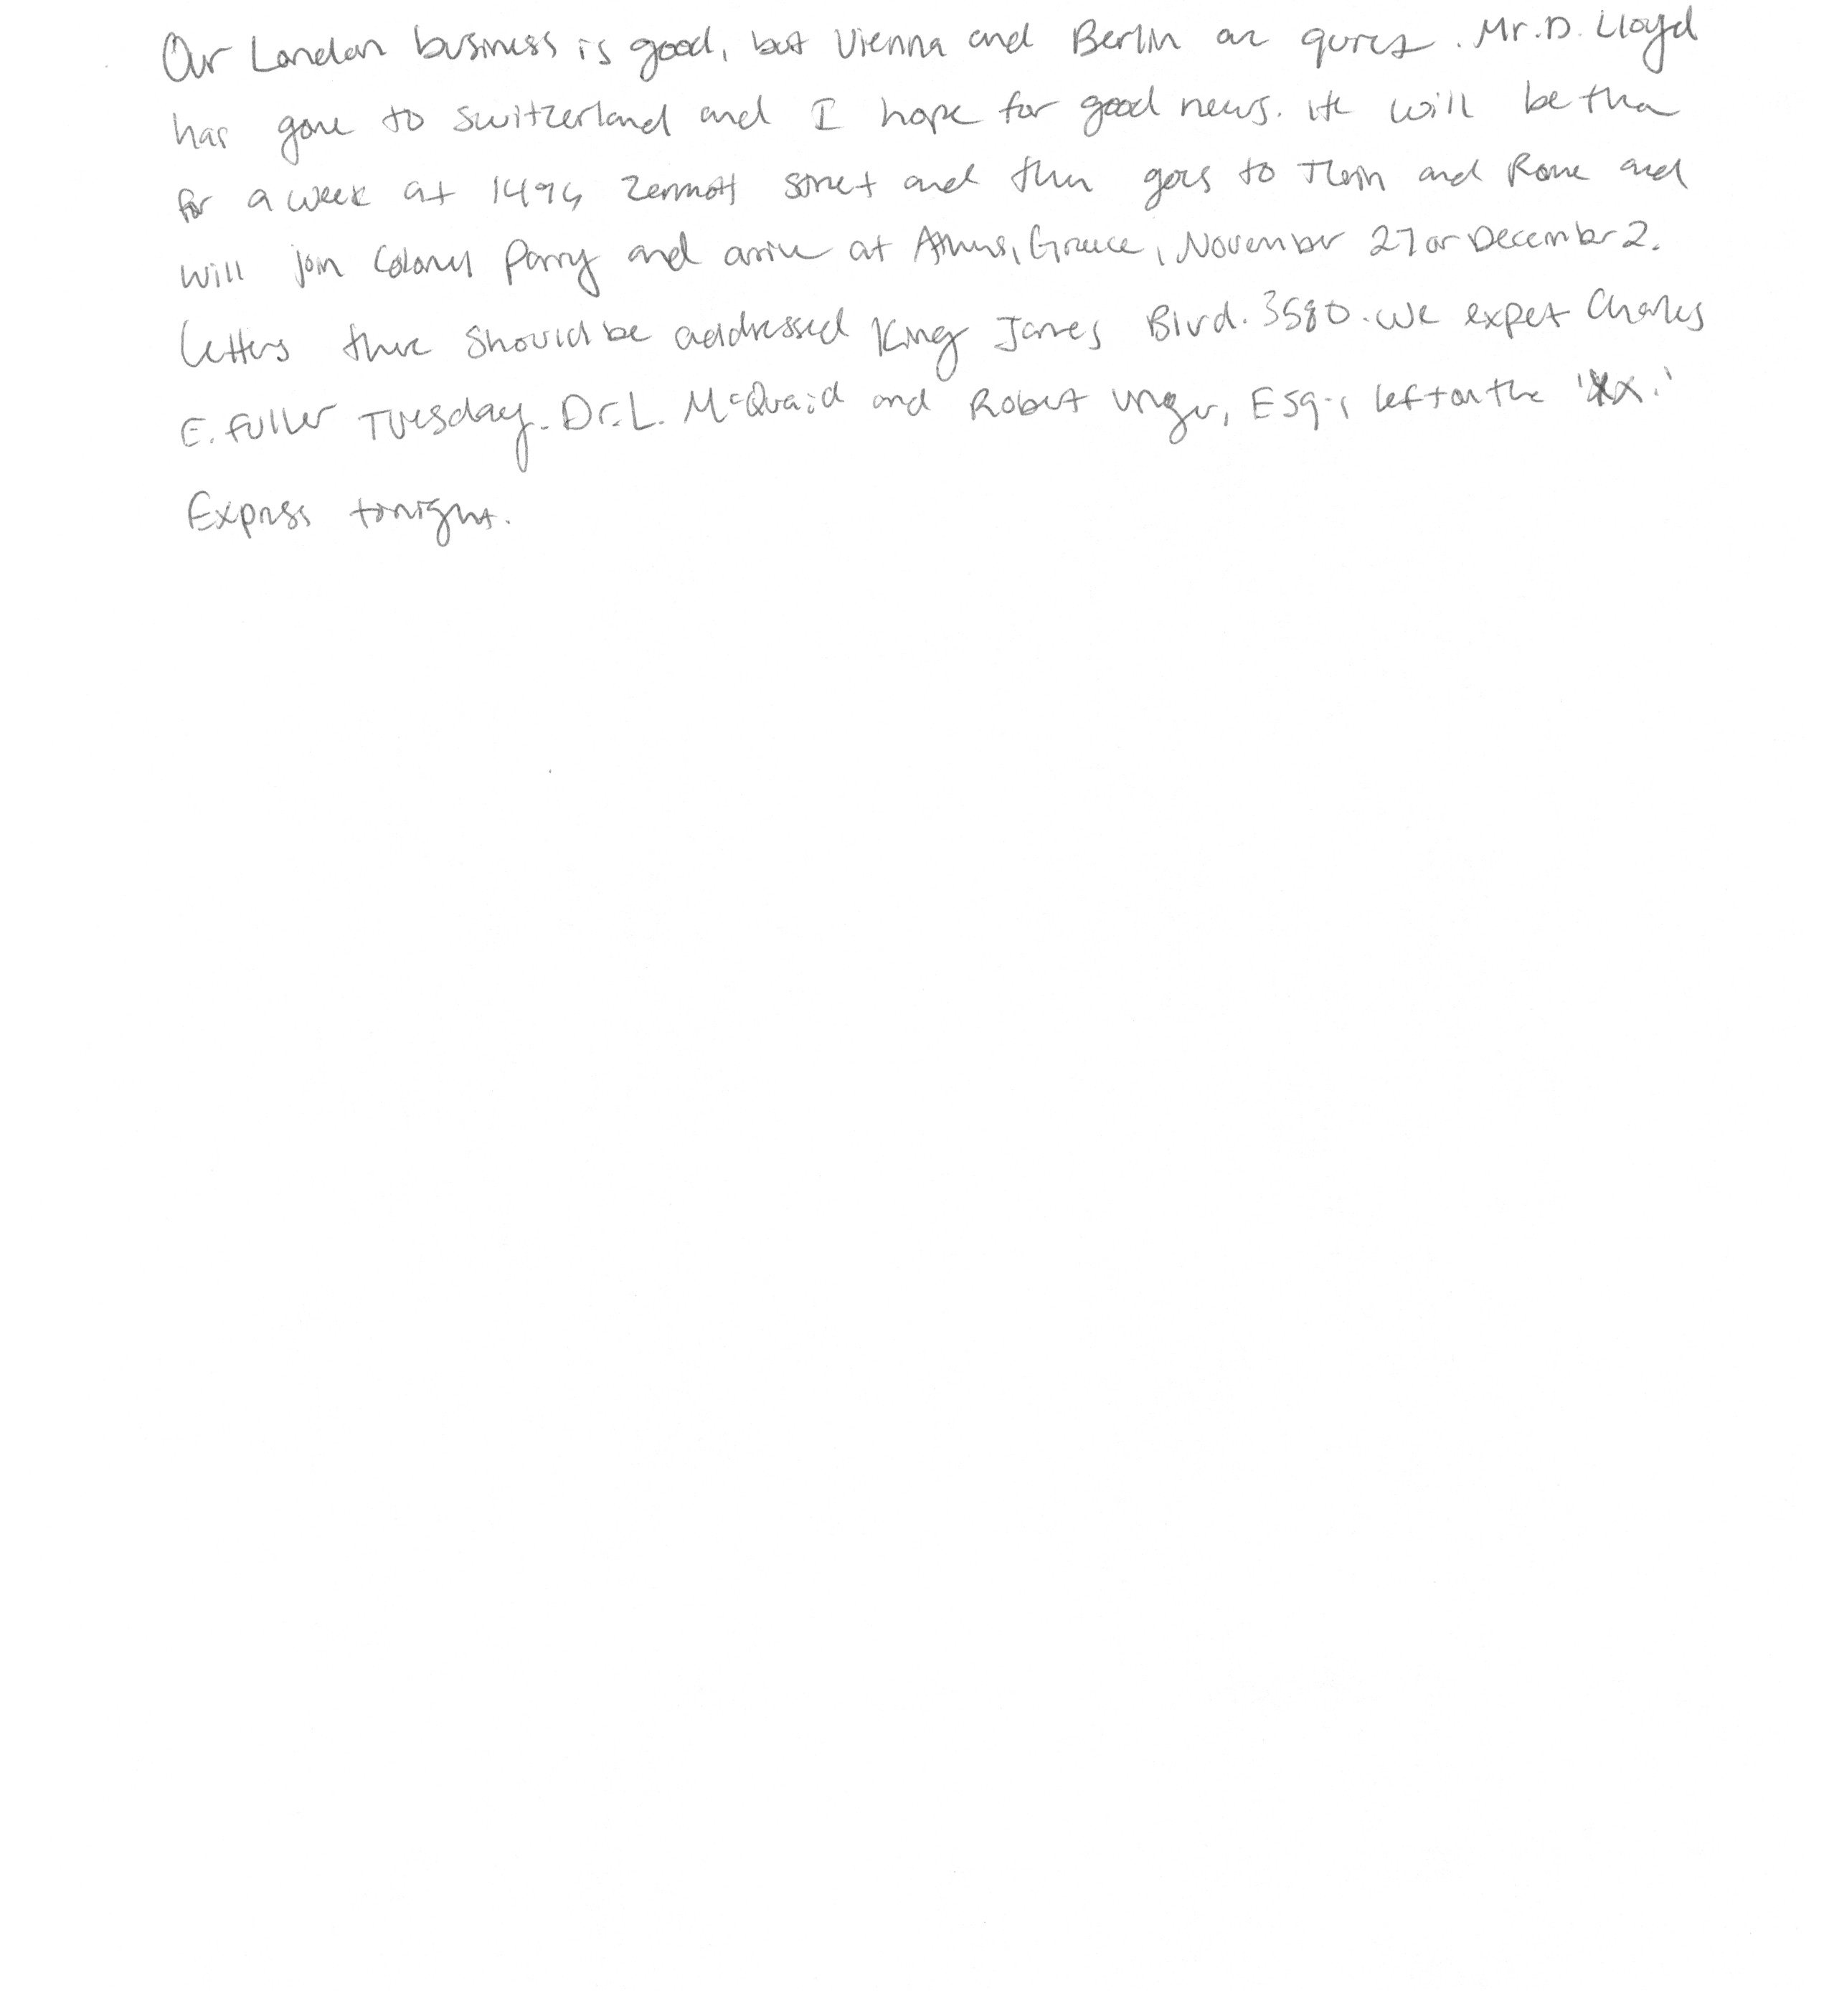 Our London business is good, but Vienna and Berlin are quiet. Mr. D. Lloyd
has gone to Switzerland and I hope for good news. He will be there
for a week at 1496 Zermott Street and then goes to Turin and Rome and
will join Colonel Parry and arrive at Athens, Greece, November 27 or December 2.
Letters there should be addressed King James Blvd. 3580. We expect Charles
E. Fuller Tuesday. Dr. L. McQuaid and Robert Unger, Esq., left on the 'XX.'
Express tonight.